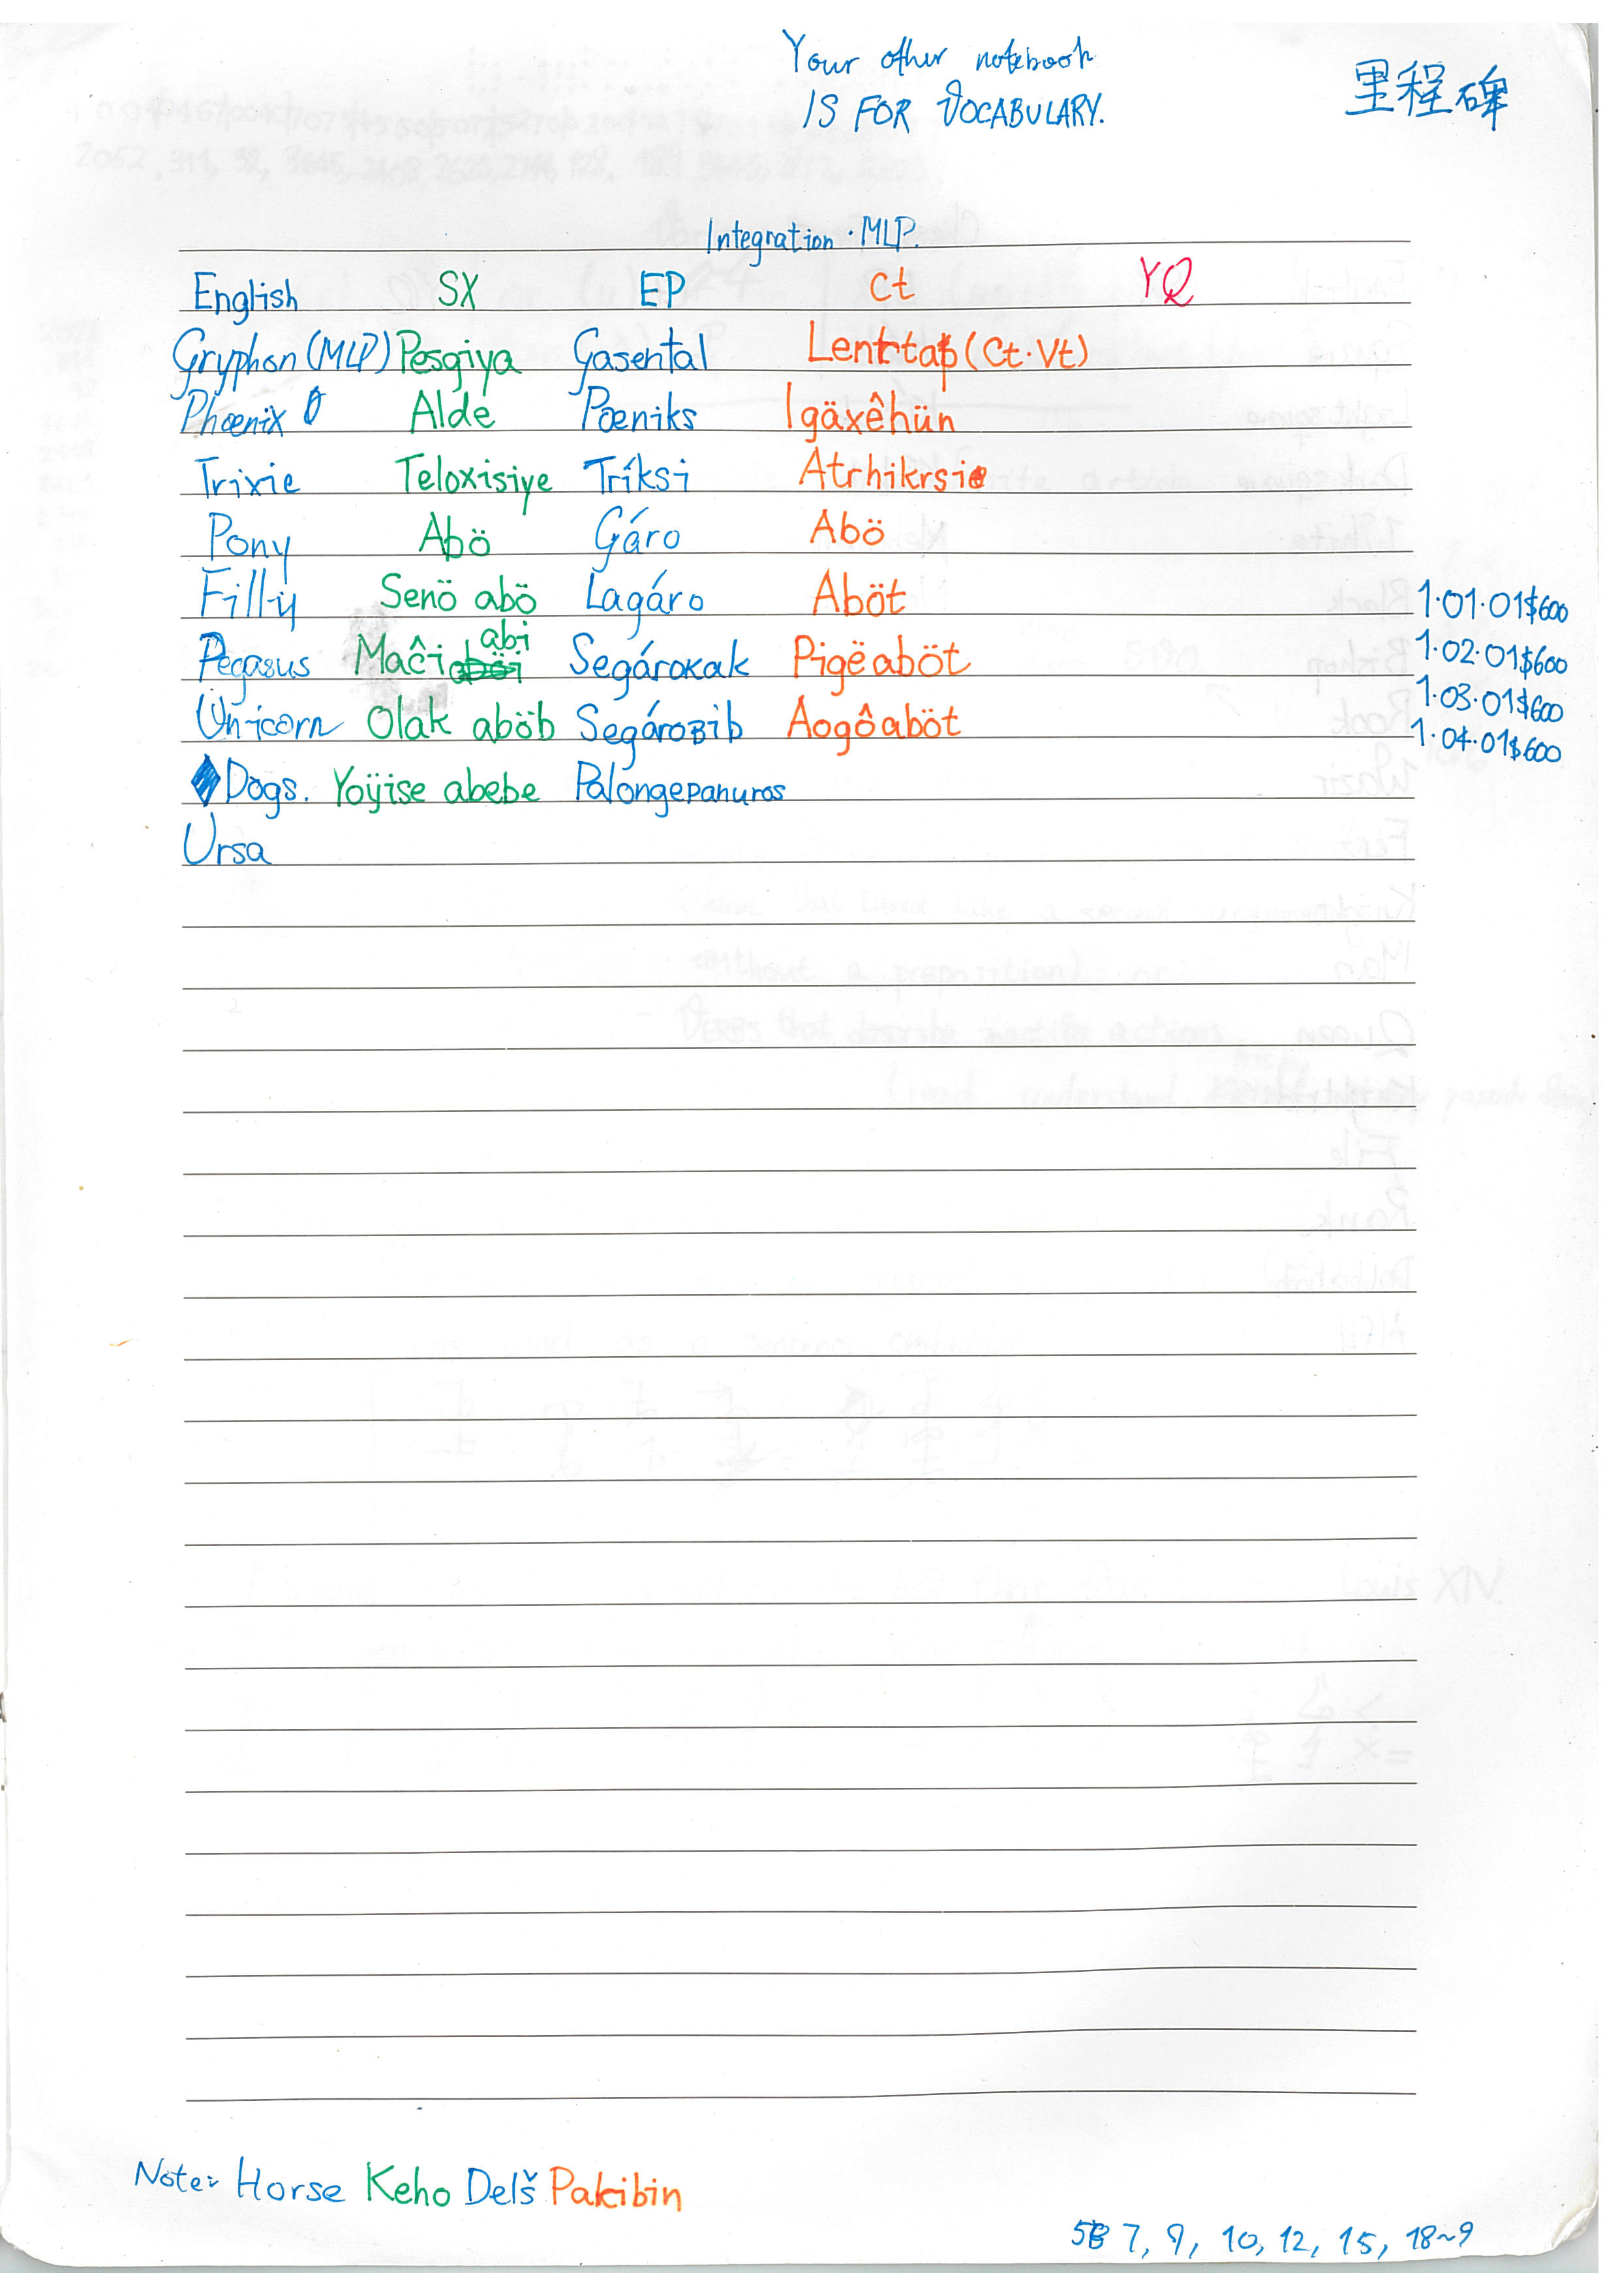 Your other notebook
IS FOR VOCABULARY.
里程碑
Integration · MLP.
English SX EP Ct YQ
Gryphon (MLP) Pesgiya Gasental Lenrtat (Ct·Vt)
Phœnix Alde Pœniks Igäxêhün
Trixie Teloxisiye Tríksi Atrhikrsie
Pony Abö Gáro Abö
Filly Senö abö Lagáro Aböt 1·01·01$600
Pegasus Maĉi abi Segárokak Pigëaböt 1·02·01$600
Unicorn Olak aböb Segárobib Aogôaböt 1·03·01$600
1·04·01$600
Dogs. Yoÿise abebe Palongepanuros
Ursa
Note: Horse Keho Delš Pakibin
7, 9, 10, 12, 15, 18~9